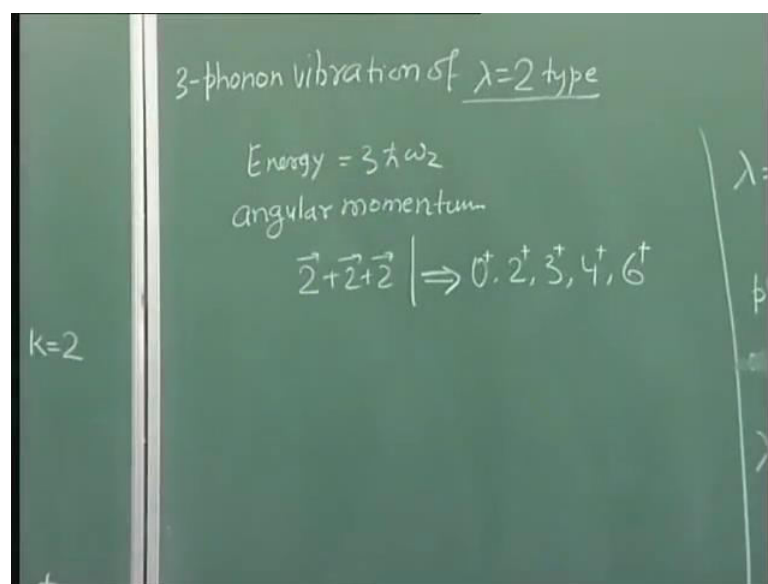 3-phonon vibration of λ=2 type
Energy = 3ħω₂
angular momentum
2⃗+2⃗+2⃗ | ⇒ 0⁺, 2⁺, 3⁺, 4⁺, 6⁺
k=2
λ=
p
λ